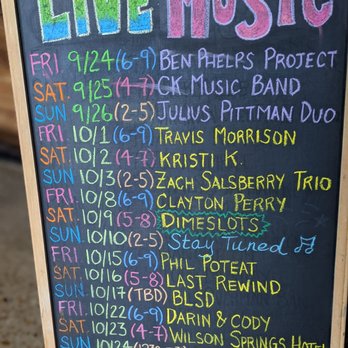 LIVE MUSIC
FRI. 9/24 (6-9) BEN PHELPS PROJECT
SAT. 9/25 (4-7) CK MUSIC BAND
SUN. 9/26 (2-5) JULIUS PITTMAN DUO
FRI. 10/1 (6-9) TRAVIS MORRISON
SAT. 10/2 (4-7) KRISTI K.
SUN. 10/3 (2-5) ZACH SALSBERRY TRIO
FRI. 10/8 (6-9) CLAYTON PERRY
SAT. 10/9 (5-8) DIMESLOTS
SUN. 10/10 (2-5) Stay Tuned
FRI. 10/15 (6-9) PHIL POTEAT
SAT. 10/16 (5-8) LAST REWIND
SUN. 10/17 (TBD) BLSD
FRI. 10/22 (6-9) DARIN & CODY
SAT. 10/23 (4-7) WILSON SPRINGS HOTEL
SUN. 10/24